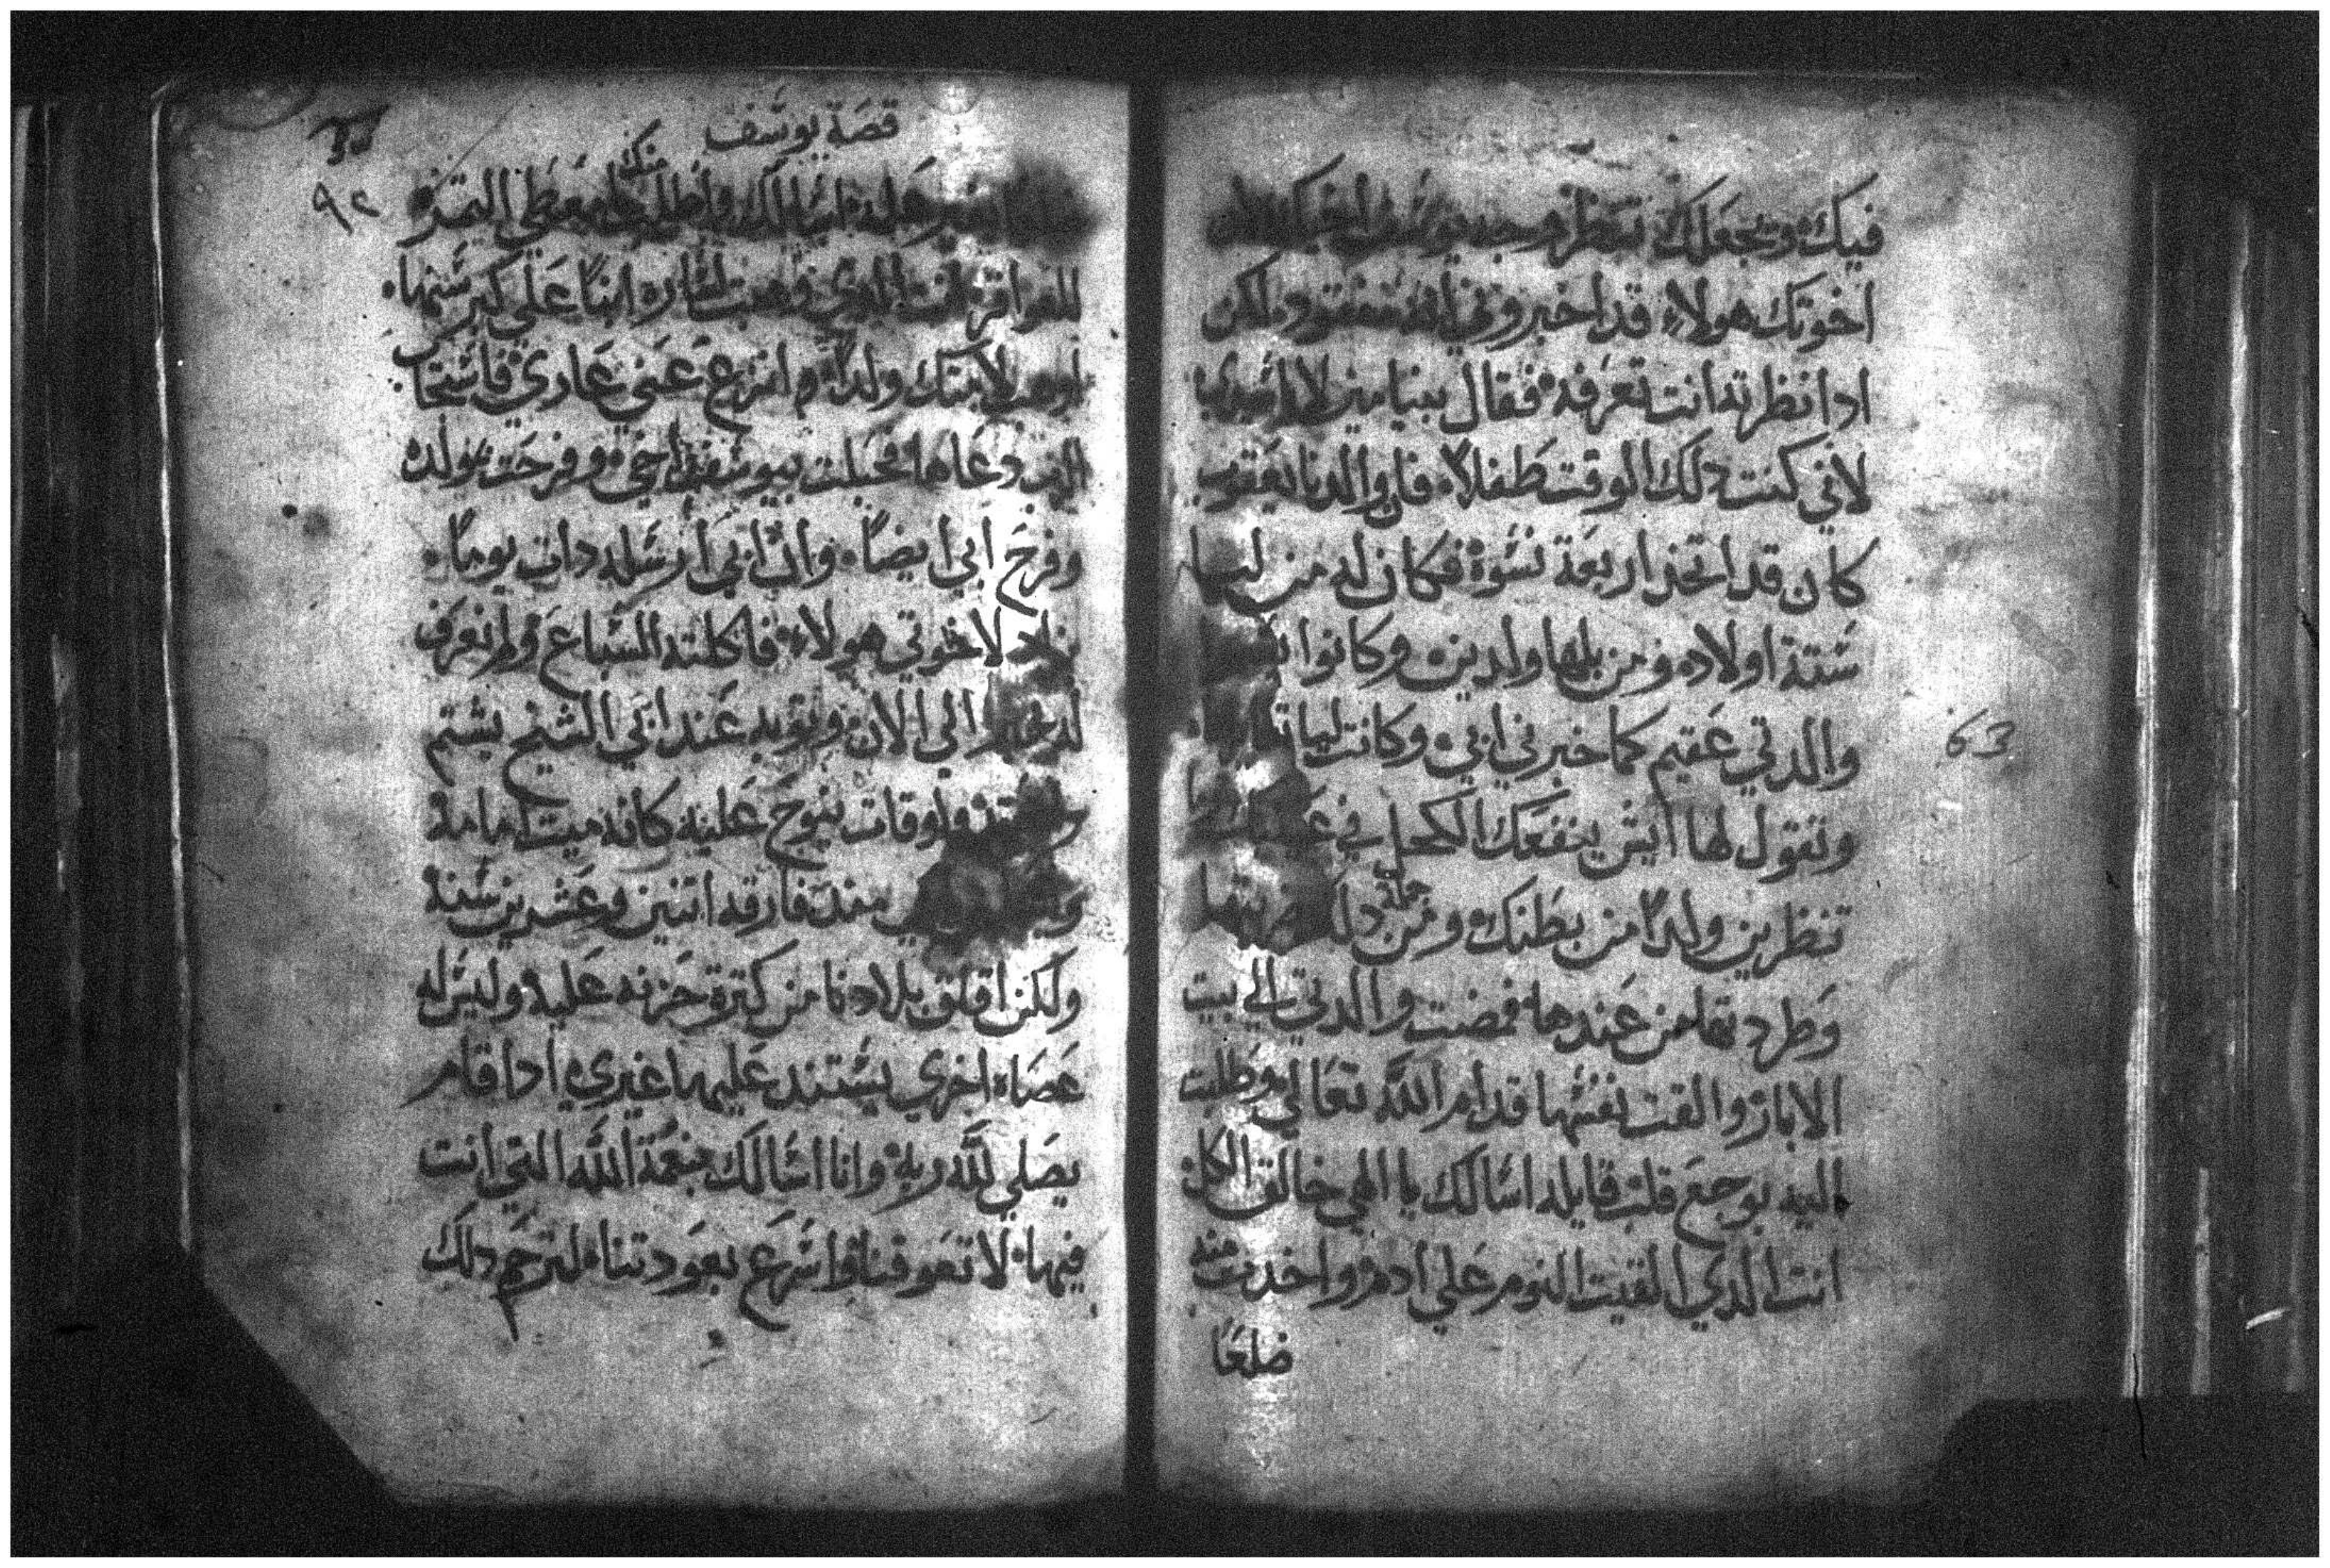 فيك وتجعلك تنظر وجه يوسف اخيك
اخوتك هولاء قد اخبروني انه مفقود ولكن
ادا نظرته انت تعرفه فقال بنيامين لا
لاني كنت دلك الوقت طفلاً فان والدنا يعقوب
كان قد اتخذ اربعة نسوة فكان له من ليا
ستة اولاد ومن بلها ولدين وكانوا
والدتي عقيم كما خبرني ابي وكانت ليا
وتقول لها ايش ينفعك الكحل في
تنظرين ولداً من بطنك ومن جملة
وطردتها من عندها فمضت والدتي الي بيت
الابا والقت نفسها قدام الله تعالي وطلبت
اليه بوجع قلب قايله اسالك يا الهي خالق الكل
انت الدي القيت النوم علي ادم واخدت منه
ضلعاً
قصة يوسف
٩٢
انا اسالك واطلب منك معطي
انت الدي وهبت لساره ابناً علي كبر سنها
لابنتك ولداً وانزع عني عاري فاستجاب
الرب دعاها فحبلت بيوسف اخي وفرحت بولده
وفرح ابي ايضاً وان ابي ارسله دات يوماً
لاخوتي هولاء فاكلته السباع ولم نعرف
له خبر الي الان وثوبه عند ابي الشيخ يشتم
واوقات ينوح عليه كانه ميت امامه
مند فارقه اتنين وعشرين سنة
ولكن اقلق بلادنا من كترة حزنه عليه وليس له
عصاه اخري يستند عليها غيري ادا قام
يصلي لله ربه وانا اسالك بنعمة الله التي انت
فيها لا تعوقنا واسرع بعودتنا لترحم دلك
63